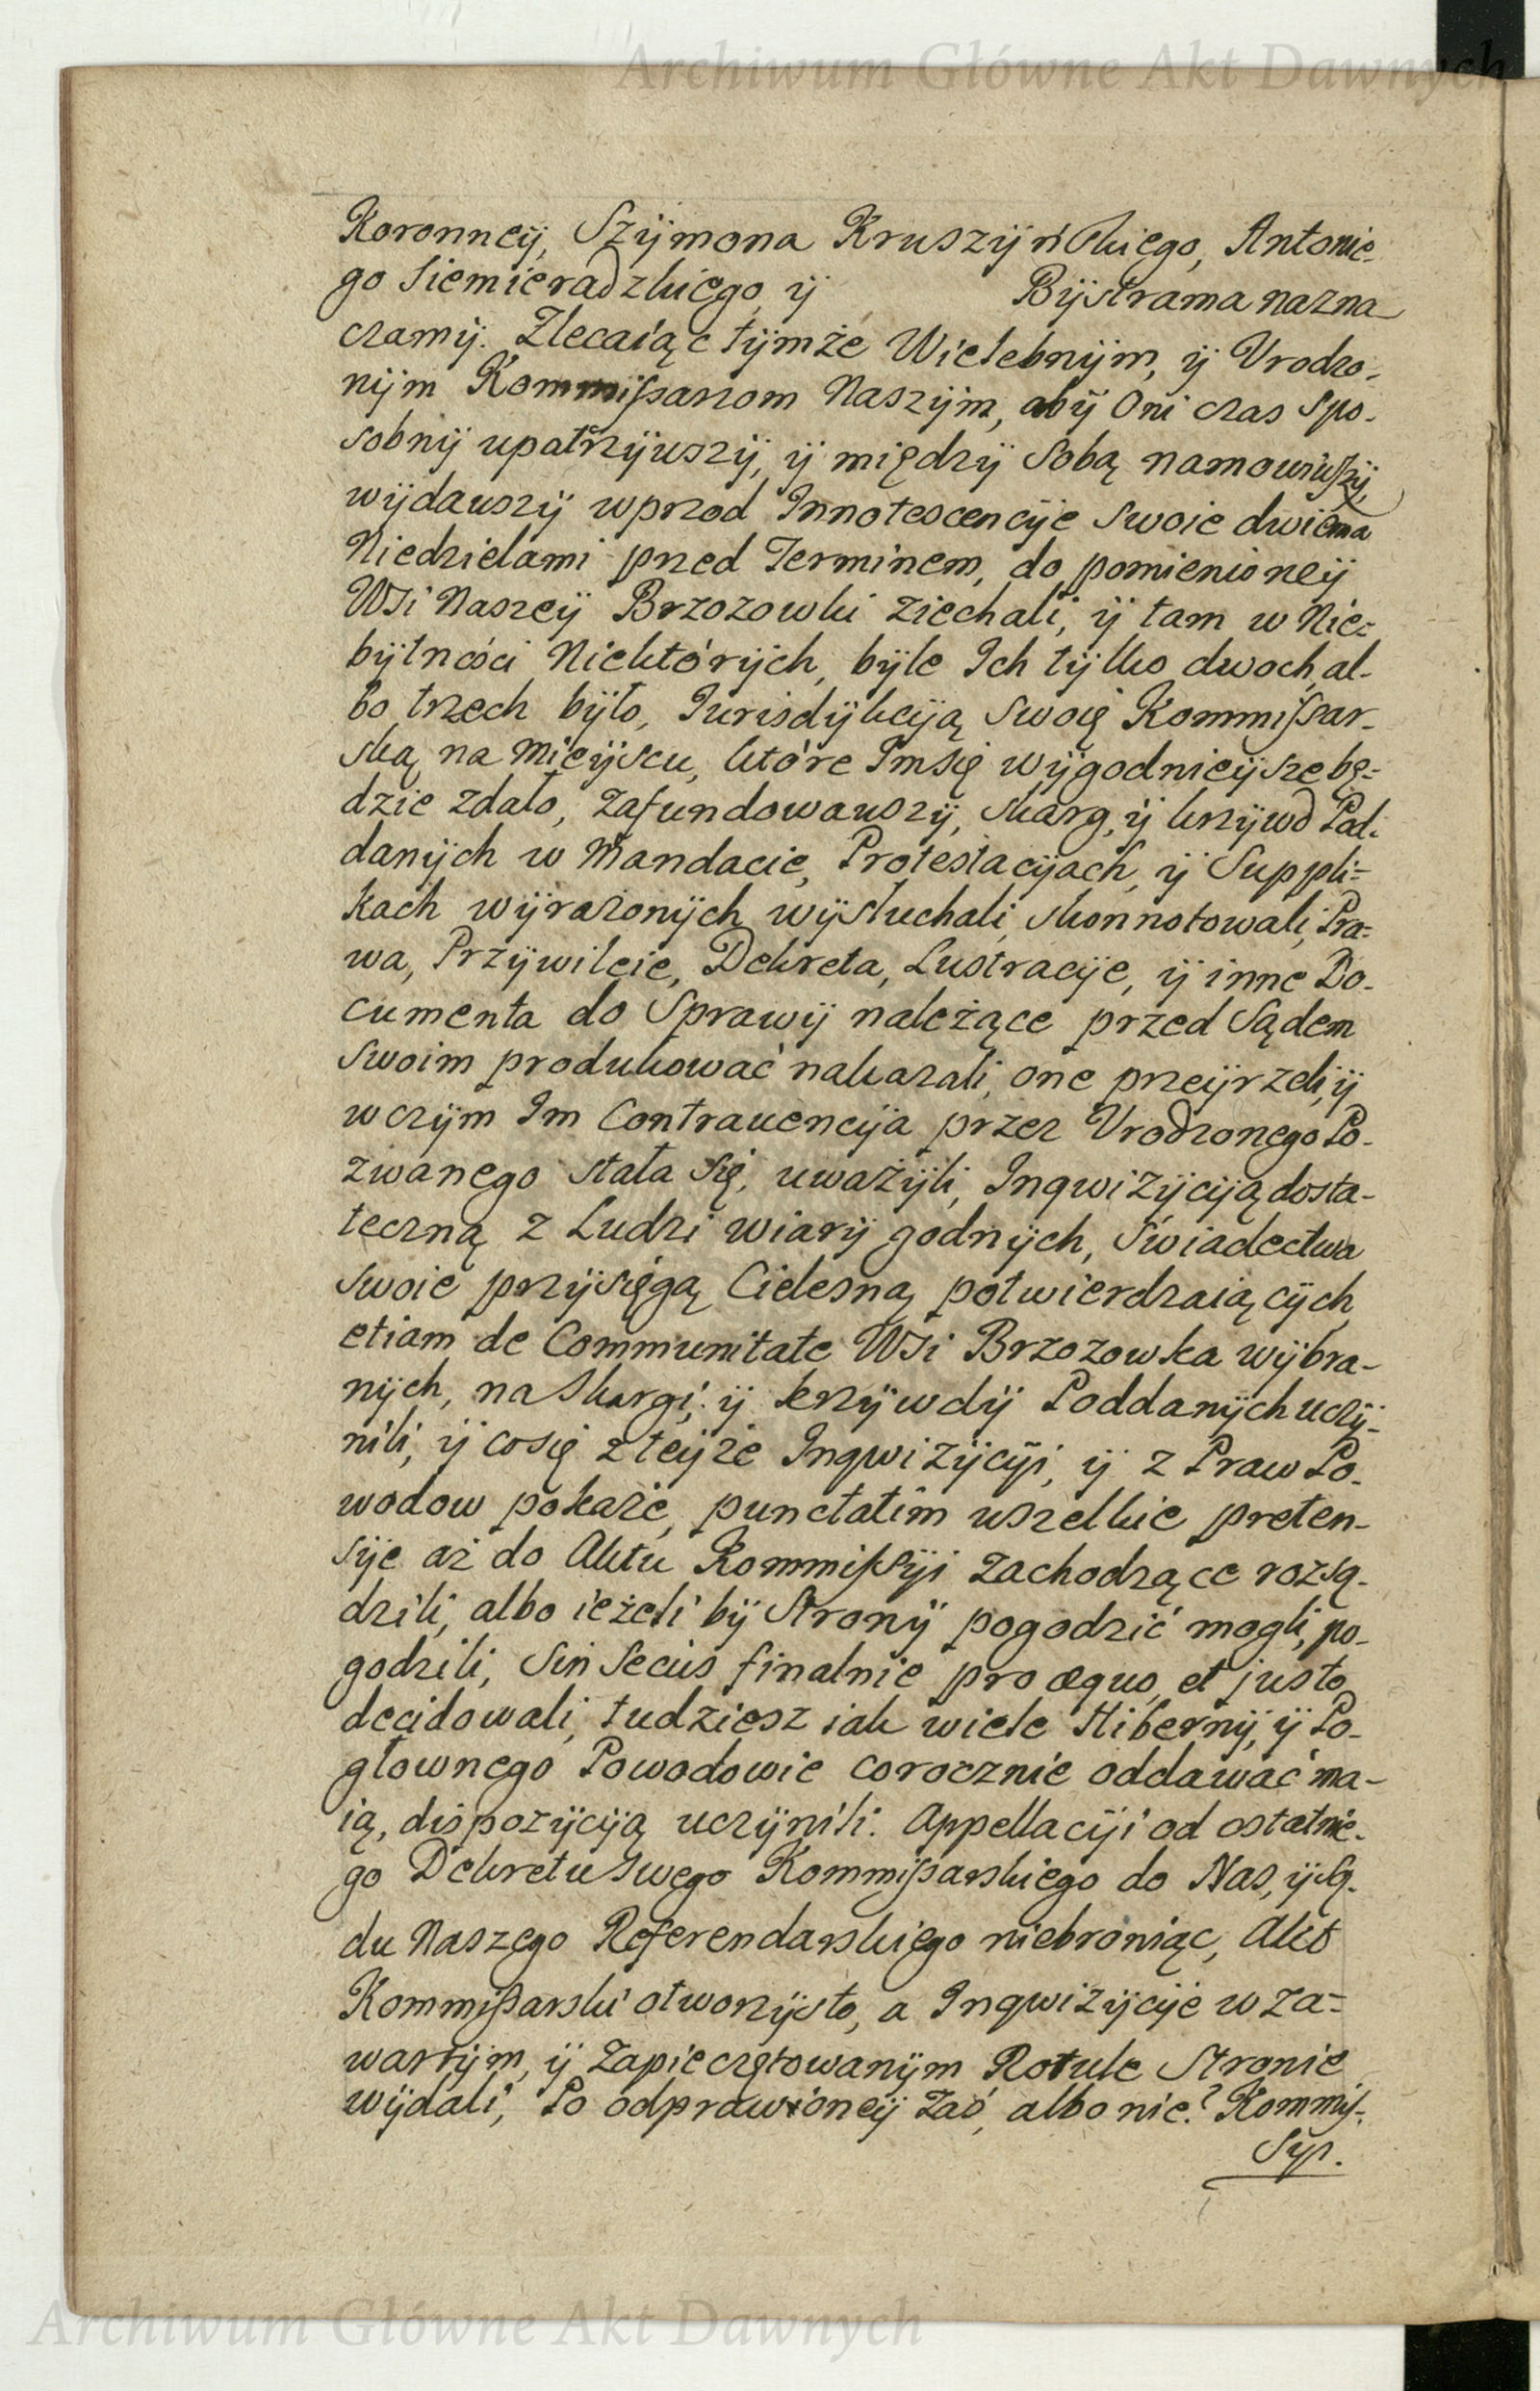 Archiwum Główne Akt Dawnych
Koronneÿ, Szÿmona Kruszÿńskiego, Antonie-
go Siemieradzkiego, ÿ Bÿstrama nazna-
czamÿ. Zlecaiąc tÿmże Wielebnÿm, ÿ Vrodzo-
nÿm Kommißarzom Naszÿm, abÿ Oni czas spo-
sobnÿ upatrzÿwszÿ, ÿ międzÿ sobą namowiwszÿ,
wÿdawszÿ wprzod Innotescencÿe swoie dwiema
Niedzielami przed Terminem, do pomienioneÿ
WSi Naszeÿ Brzozowki ziechali, ÿ tam w Nie=
bÿtności Niektórÿch, bÿle Ich tÿlko dwoch, al-
bo trzech bÿło, Jurisdÿkcÿą swoię Kommißar-
ską na Mieÿscu, które Imsię wÿgodnieÿsze bę=
dzie zdało, zafundowawszÿ, skarg, ÿ krzÿwd Pod-
danÿch w Mandacie, Protestacÿach, ÿ Suppli=
kach wÿrażonÿch wÿsłuchali, skonnotowali, Pra=
wa, Przÿwileie, Dekreta, Lustracÿe, ÿ inne Do-
cumenta do Sprawÿ należące przed Sądem
swoim produkować nakazali, one przeÿrzeli, ÿ
wczÿm Im Contravencÿa przez Vrodzonego Po-
zwanego stała się, uważÿli, Inqwizÿcÿą dosta-
teczną z Ludzi wiarÿ godnÿch, świadectwa
swoie przÿsięgą Cielesną potwierdzaiącÿch,
etiam de Communitate WSi Brzozowka wÿbra-
nÿch, na Skargi, ÿ krzÿwdÿ Poddanÿch uczÿ-
nili, ÿ cosię z teÿże Inqwizÿcÿi, ÿ z Praw Po-
wodow pokaże, punctatim wszelkie preten-
sÿe aż do Aktu Kommißÿi zachodzące rozsą-
dzili, albo ieżeli bÿ Stronÿ pogodzić mogli, po-
godzili, sin secus finalnie pro æquo, et justo
decidowali, tudziesz iak wiele Hibernÿ, ÿ Po-
głownego Powodowie corocznie oddawać ma-
ią, dispozÿcÿą uczÿnili. Appellacÿi od ostatnie-
go Dekretu Swego Kommißarskiego do Nas, ÿ Są-
du Naszego Referendarskiego niebroniąc, Akt
Kommißarski otworzÿsto, a Inqwizÿcÿe w za=
wartÿm, ÿ zapieczętowanÿm Rotule Stronie
wÿdali, Po odprawioneÿ zaś, albo nie? Kommis-
Sÿi.
Archiwum Główne Akt Dawnych